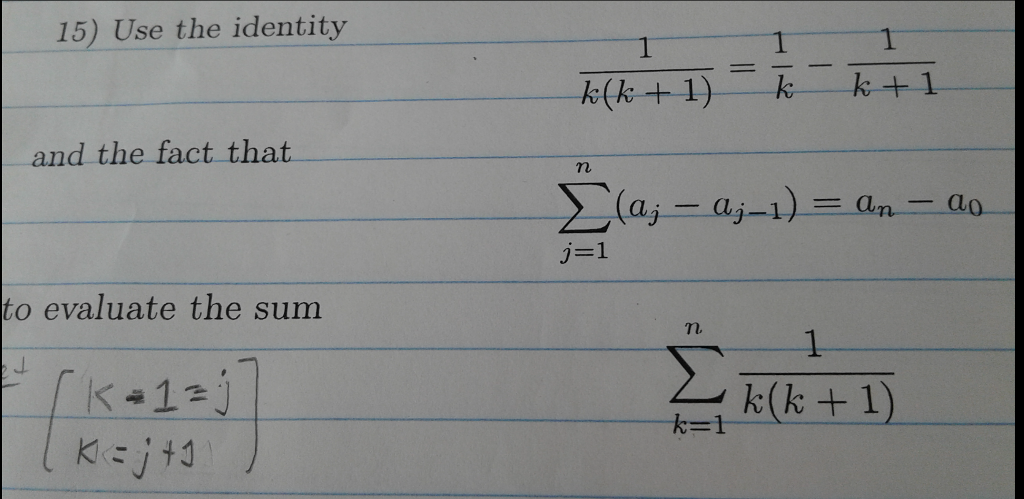 15) Use the identity
1/(k(k + 1)) = 1/k − 1/(k + 1)
and the fact that
∑_{j=1}^{n} (a_j − a_{j−1}) = a_n − a_0
to evaluate the sum
∑_{k=1}^{n} 1/(k(k + 1))
[K - 1 = j
K = j + 1]